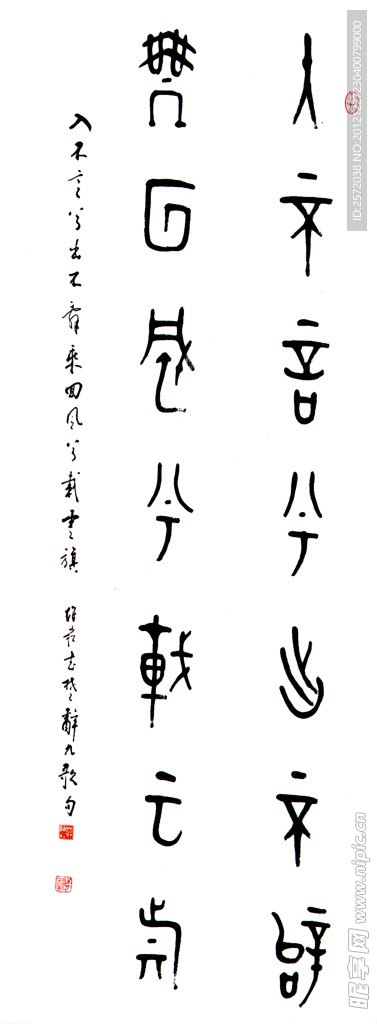 入不言兮出不辭
乘回風兮載雲旗
入不言兮出不辭乘回風兮載雲旗 書楚辭九歌句
昵享网 www.nipic.cn
ID:2572038 NO:20121227230400799000